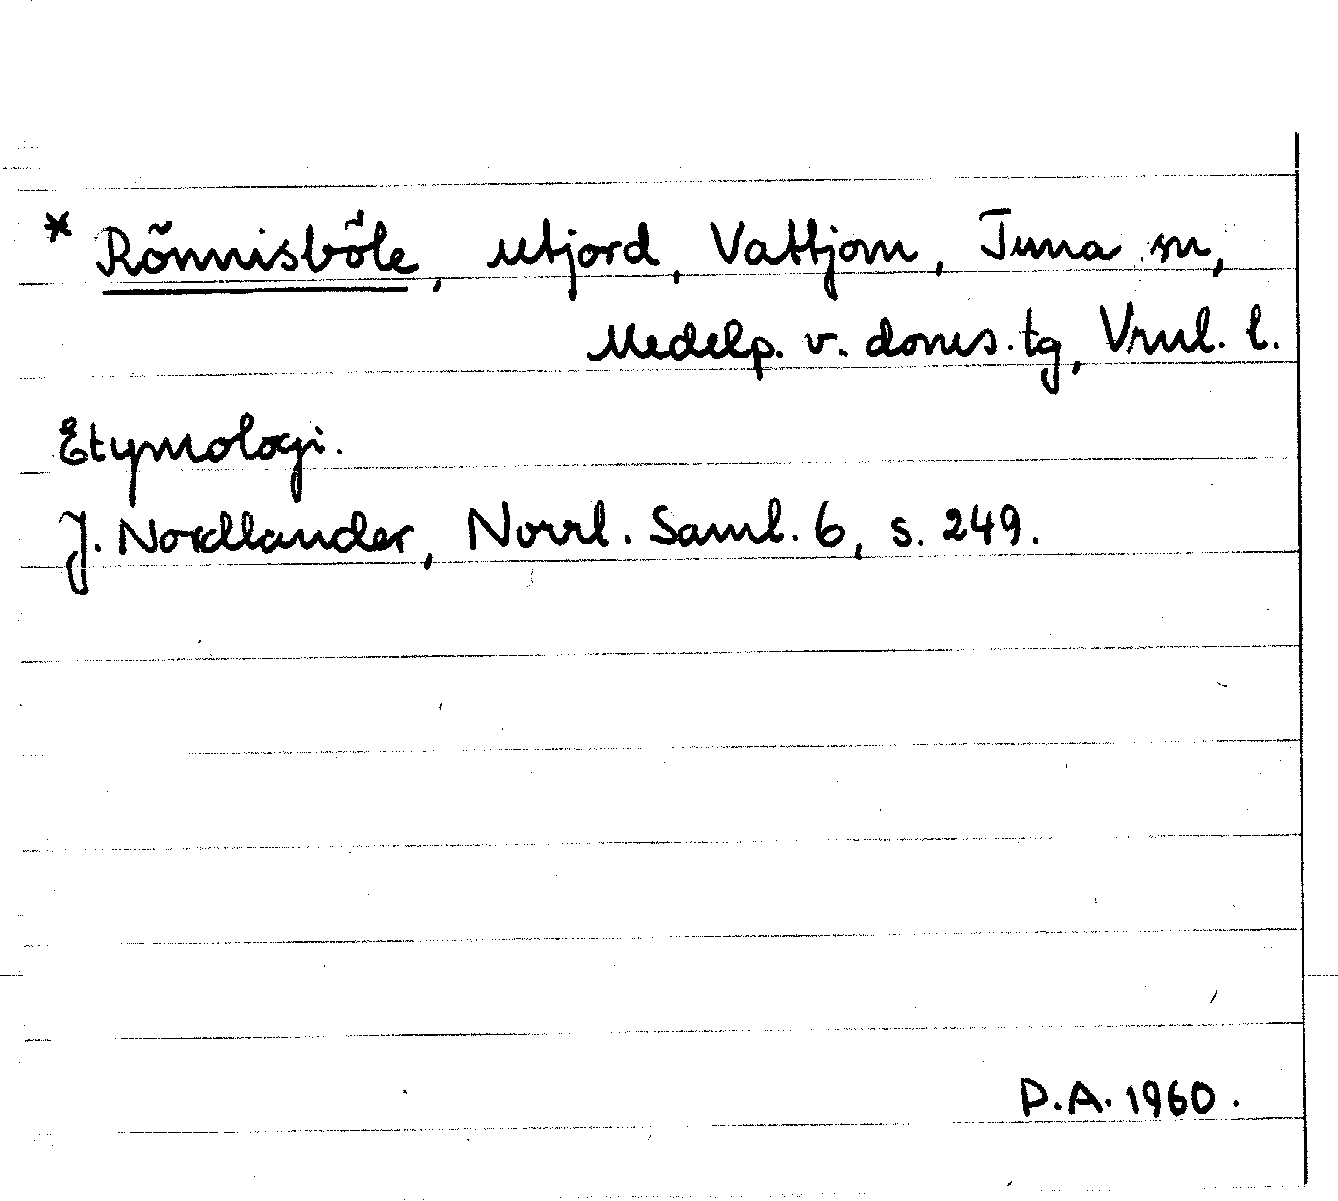 * Rönnisböle, utjord, Vattjom, Tuna sn,
Medelp. v. doms.tg, Vrnl. l.
Etymologi.
J. Nordlander, Norrl. Saml. 6, s. 249.
P.A. 1960.